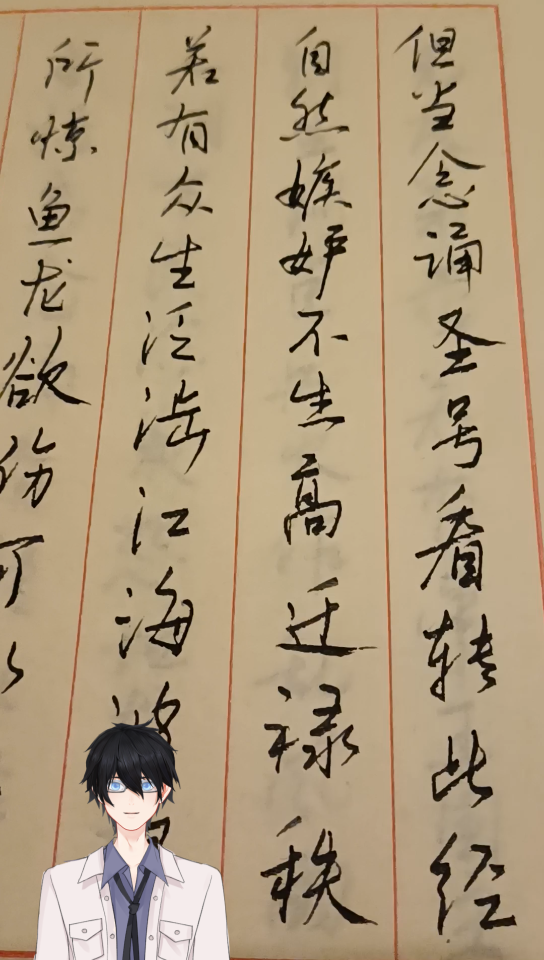 但当念诵圣号看转此经
自然嫉妒不生高迁禄秩
若有众生泛涉江海波
所惊鱼龙欲伤可以